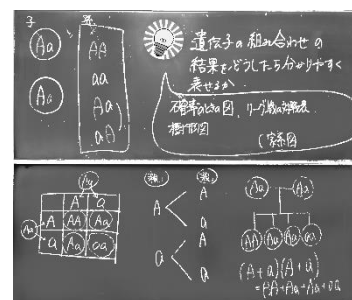 子
Aa
Aa
AA
aa
Aa
aA
遺伝子の組み合わせの
結果を、どうしたら分かりやすく
表せるか
確率のときの図、リーグ戦の対戦表
樹形図
(家系図
Aa
A a
Aa A AA Aa
a Aa aa
A A
a
a A
a
Aa Aa
AA Aa Aa aa
(A+a)(A+a)
=AA+Aa+Aa+aa